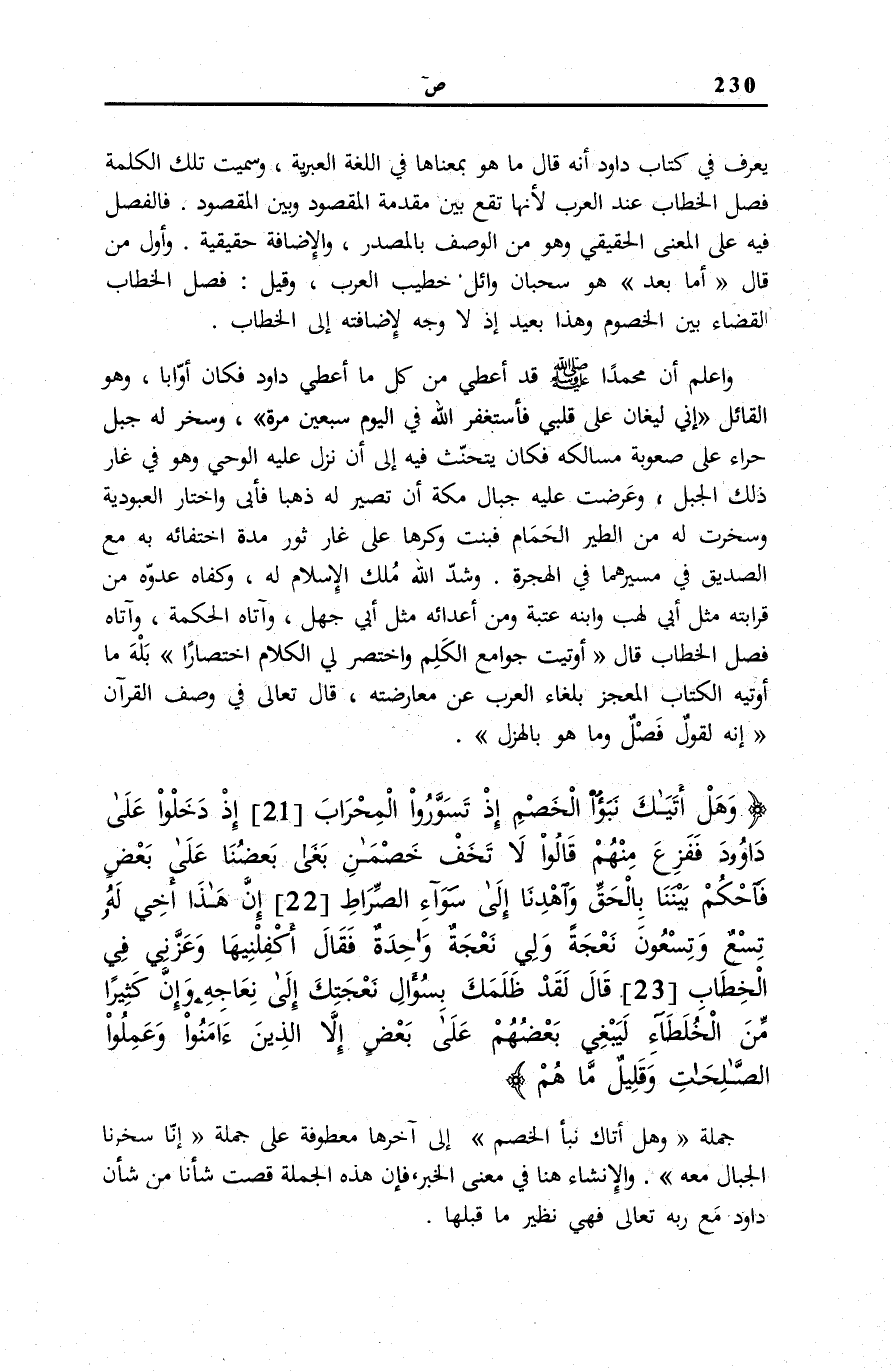 230 ص~
يعرف في كتاب داود أنه قال ما هو بمعناها في اللغة العبرية ، وسميت تلك الكلمة
فصل الخطاب عند العرب لأنها تقع بين مقدمة المقصود وبين المقصود . فالفصل
فيه على المعنى الحقيقي وهو من الوصف بالمصدر ، والإضافة حقيقية . وأول من
قال « أما بعد » هو سحبان وائل خطيب العرب ، وقيل : فصل الخطاب
القضاء بين الخصوم وهذا بعيد إذ لا وجه لإضافته إلى الخطاب .
واعلم أن محمدًا ﷺ قد أعطي من كل ما أعطي داود فكان أوّابا ، وهو
القائل «إني ليغان على قلبي فأستغفر الله في اليوم سبعين مرة» ، وسخر له جبل
حراء على صعوبة مسالكه فكان يتحنّث فيه إلى أن نزل عليه الوحي وهو في غار
ذلك الجبل ، وعَرضت عليه جبال مكة أن تصير له ذهبا فأبى واختار العبودية
وسخرت له من الطير الحَمَام فبنت وكرها على غار ثور مدة اختفائه به مع
الصديق في مسيرهما في الهجرة . وشدّ الله مُلك الإسلام له ، وكفاه عدوّه من
قرابته مثل أبي لهب وابنه عتبة ومن أعدائه مثل أبي جهل ، وآتاه الحكمة ، وآتاه
فصل الخطاب قال « أوتيت جوامع الكَلِم واختصر لي الكلام اختصارًا » بَلْهَ ما
أوتيه الكتاب المعجز بلغاء العرب عن معارضته ، قال تعالى في وصف القرآن
« إنه لقولٌ فَصْلٌ وما هو بالهزل » .
﴿ وَهَلْ أَتَيٰكَ نَبَؤُاْ الْخَصْمِ إِذْ تَسَوَّرُواْ الْمِحْرَابَ [21] إِذْ دَخَلُواْ عَلَىٰ
دَاوُۥدَ فَفَزِعَ مِنْهُمْ قَالُواْ لَا تَخَفْ خَصْمَـٰنِ بَغَىٰ بَعضُنَا عَلَىٰ بَعْضٍ
فَٱحْكُمْ بَيْنَنَا بِالْحَقِّ وَٱهْدِنَا إِلَىٰ سَوَآءِ الصِّرَاطِ [22] إِنَّ هَـٰذَا أَخِي لَهُۥ
تِسْعٌ وَتِسْعُونَ نَعْجَةً وَلِي نَعْجَةٌ وَٰحِدَةٌ فَقَالَ أَكْفِلْنِيهَا وَعَزَّنِي فِي
الْخِطَابِ [23] قَالَ لَقَدْ ظَلَمَكَ بِسُؤَالِ نَعْجَتِكَ إِلَىٰ نِعَاجِهِۦ وَإِنَّ كَثِيرًا
مِّنَ الْخُلَطَآءِ لَيَبْغِي بَعْضُهُمْ عَلَىٰ بَعْضٍ إِلَّا الذِينَ ءَامَنُواْ وَعَمِلُواْ
الصَّـٰلِحَـٰتِ وَقَلِيلٌ مَّا هُمْ ﴾
جملة « وهل أتاك نبأ الخصم » إلى آخرها معطوفة على جملة « إنّا سخرنا
الجبال معه » . والإنشاء هنا في معنى الخبر، فإن هذه الجملة قصت شأنا من شأن
داود مَع ربه تعالى فهي نظير ما قبلها .